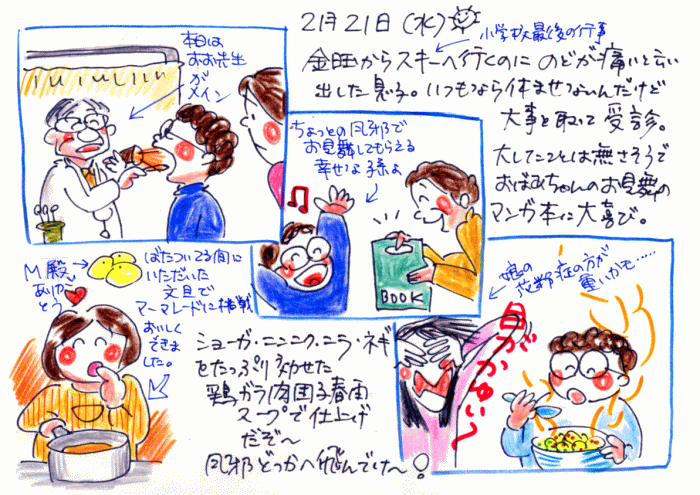 2月21日(水)
小学校最後の行事
金旺からスキーへ行くのに のどが痛いと言い
出した息子。いつもなら休ませないんだけど
大事を取って受診。
大したことは無さそうで
おばあちゃんのお見舞の
マンガ本に大喜び。
本日は
おお先生
が
メイン
ちょっとの風邪で
お見舞してもらえる
幸せな孫よ
BOOK
M殿
ありがとう
ばたついてる間に
いただいた
文旦で
マーマレードに挑戦
おいしく
できま
した。
娘の
花粉症の方が
重いかも……
目がかゆい〜
ショーガ・ニンニク・ニラ・ネギ
をたっぷり効かせた
鶏ガラ肉団子春雨
スープで仕上げ
だぞ〜
風邪どっかへ飛んでけ〜!